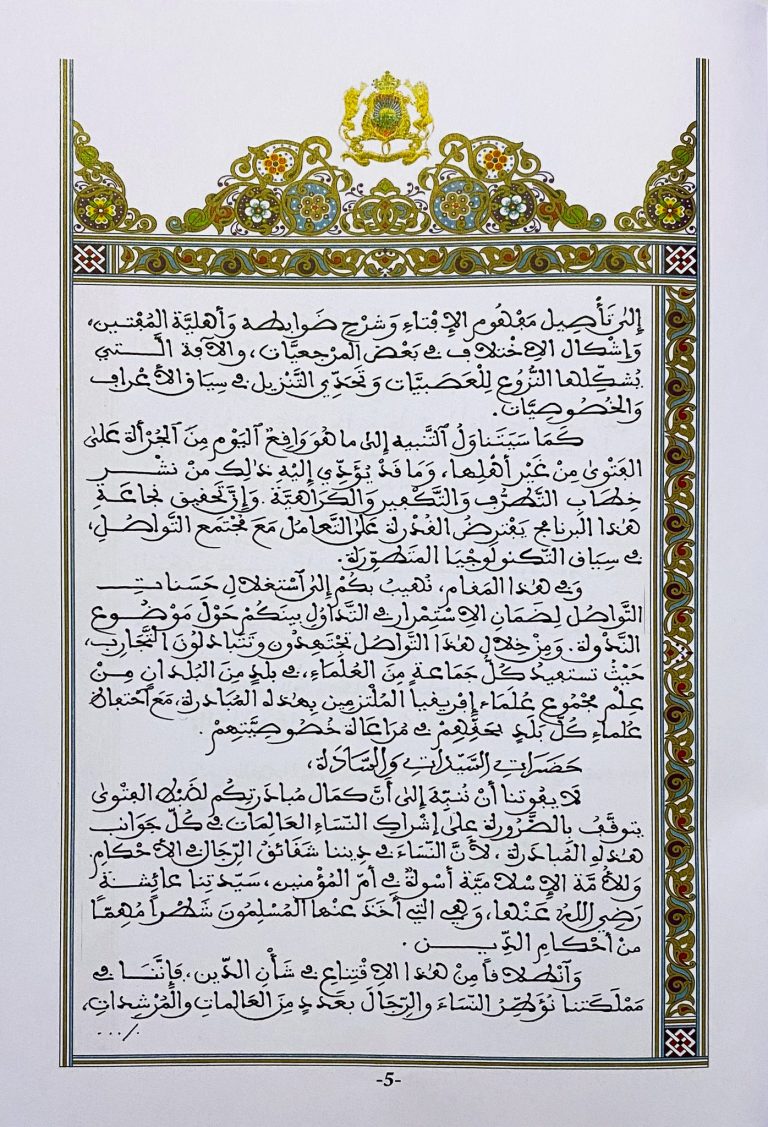 إلى تأصيل مفهوم الإفتاء وشرح ضوابطه وأهلية المفتين،
وإشكال الاختلاف في بعض المرجعيات، والآفة التي
يشكلها النزوع للعصبيات وتحدي التنزيل في سياق الأعراف
والخصوصيات.
كما سيتناول التنبيه إلى ما هو واقع اليوم من الجرأة على
الفتوى من غير أهلها، وما قد يؤدي إليه ذلك من نشر
خطاب التطرف والتكفير والكراهية. وإن تحقيق نجاعة
هذا البرنامج يفترض القدرة على التعامل مع مجتمع التواصل،
في سياق التكنولوجيا المتطورة.
وفي هذا المقام، نهيب بكم إلى استغلال حسنات
التواصل لضمان الاستمرار في التداول بينكم حول موضوع
الندوة. ومن خلال هذا التواصل تجتهدون وتتبادلون التجارب،
حيث تستفيد كل جماعة من العلماء، في بلد من البلدان من
علم مجموع علماء إفريقيا الملتزمين بهذه المبادرة، مع احتفاظ
علماء كل بلد بحقهم في مراعاة خصوصيتهم.
حضرات السيدات والسادة،
لا يفوتنا أن ننبه إلى أن كمال مبادرتكم لضبط الفتوى
يتوقف بالضرورة على إشراك النساء العالمات في كل جوانب
هذه المبادرة، لأن النساء في ديننا شقائق الرجال في الأحكام
وللأمة الإسلامية أسوة في أم المؤمنين، سيدتنا عائشة
رضي الله عنها، وهي التي أخذ عنها المسلمون شطرا مهما
من أحكام الدين.
وانطلاقا من هذا الاقتناع في شأن الدين، فإننا في
مملكتنا نؤطر النساء والرجال بعدد من العالمات والمرشدات،
/...
-5-